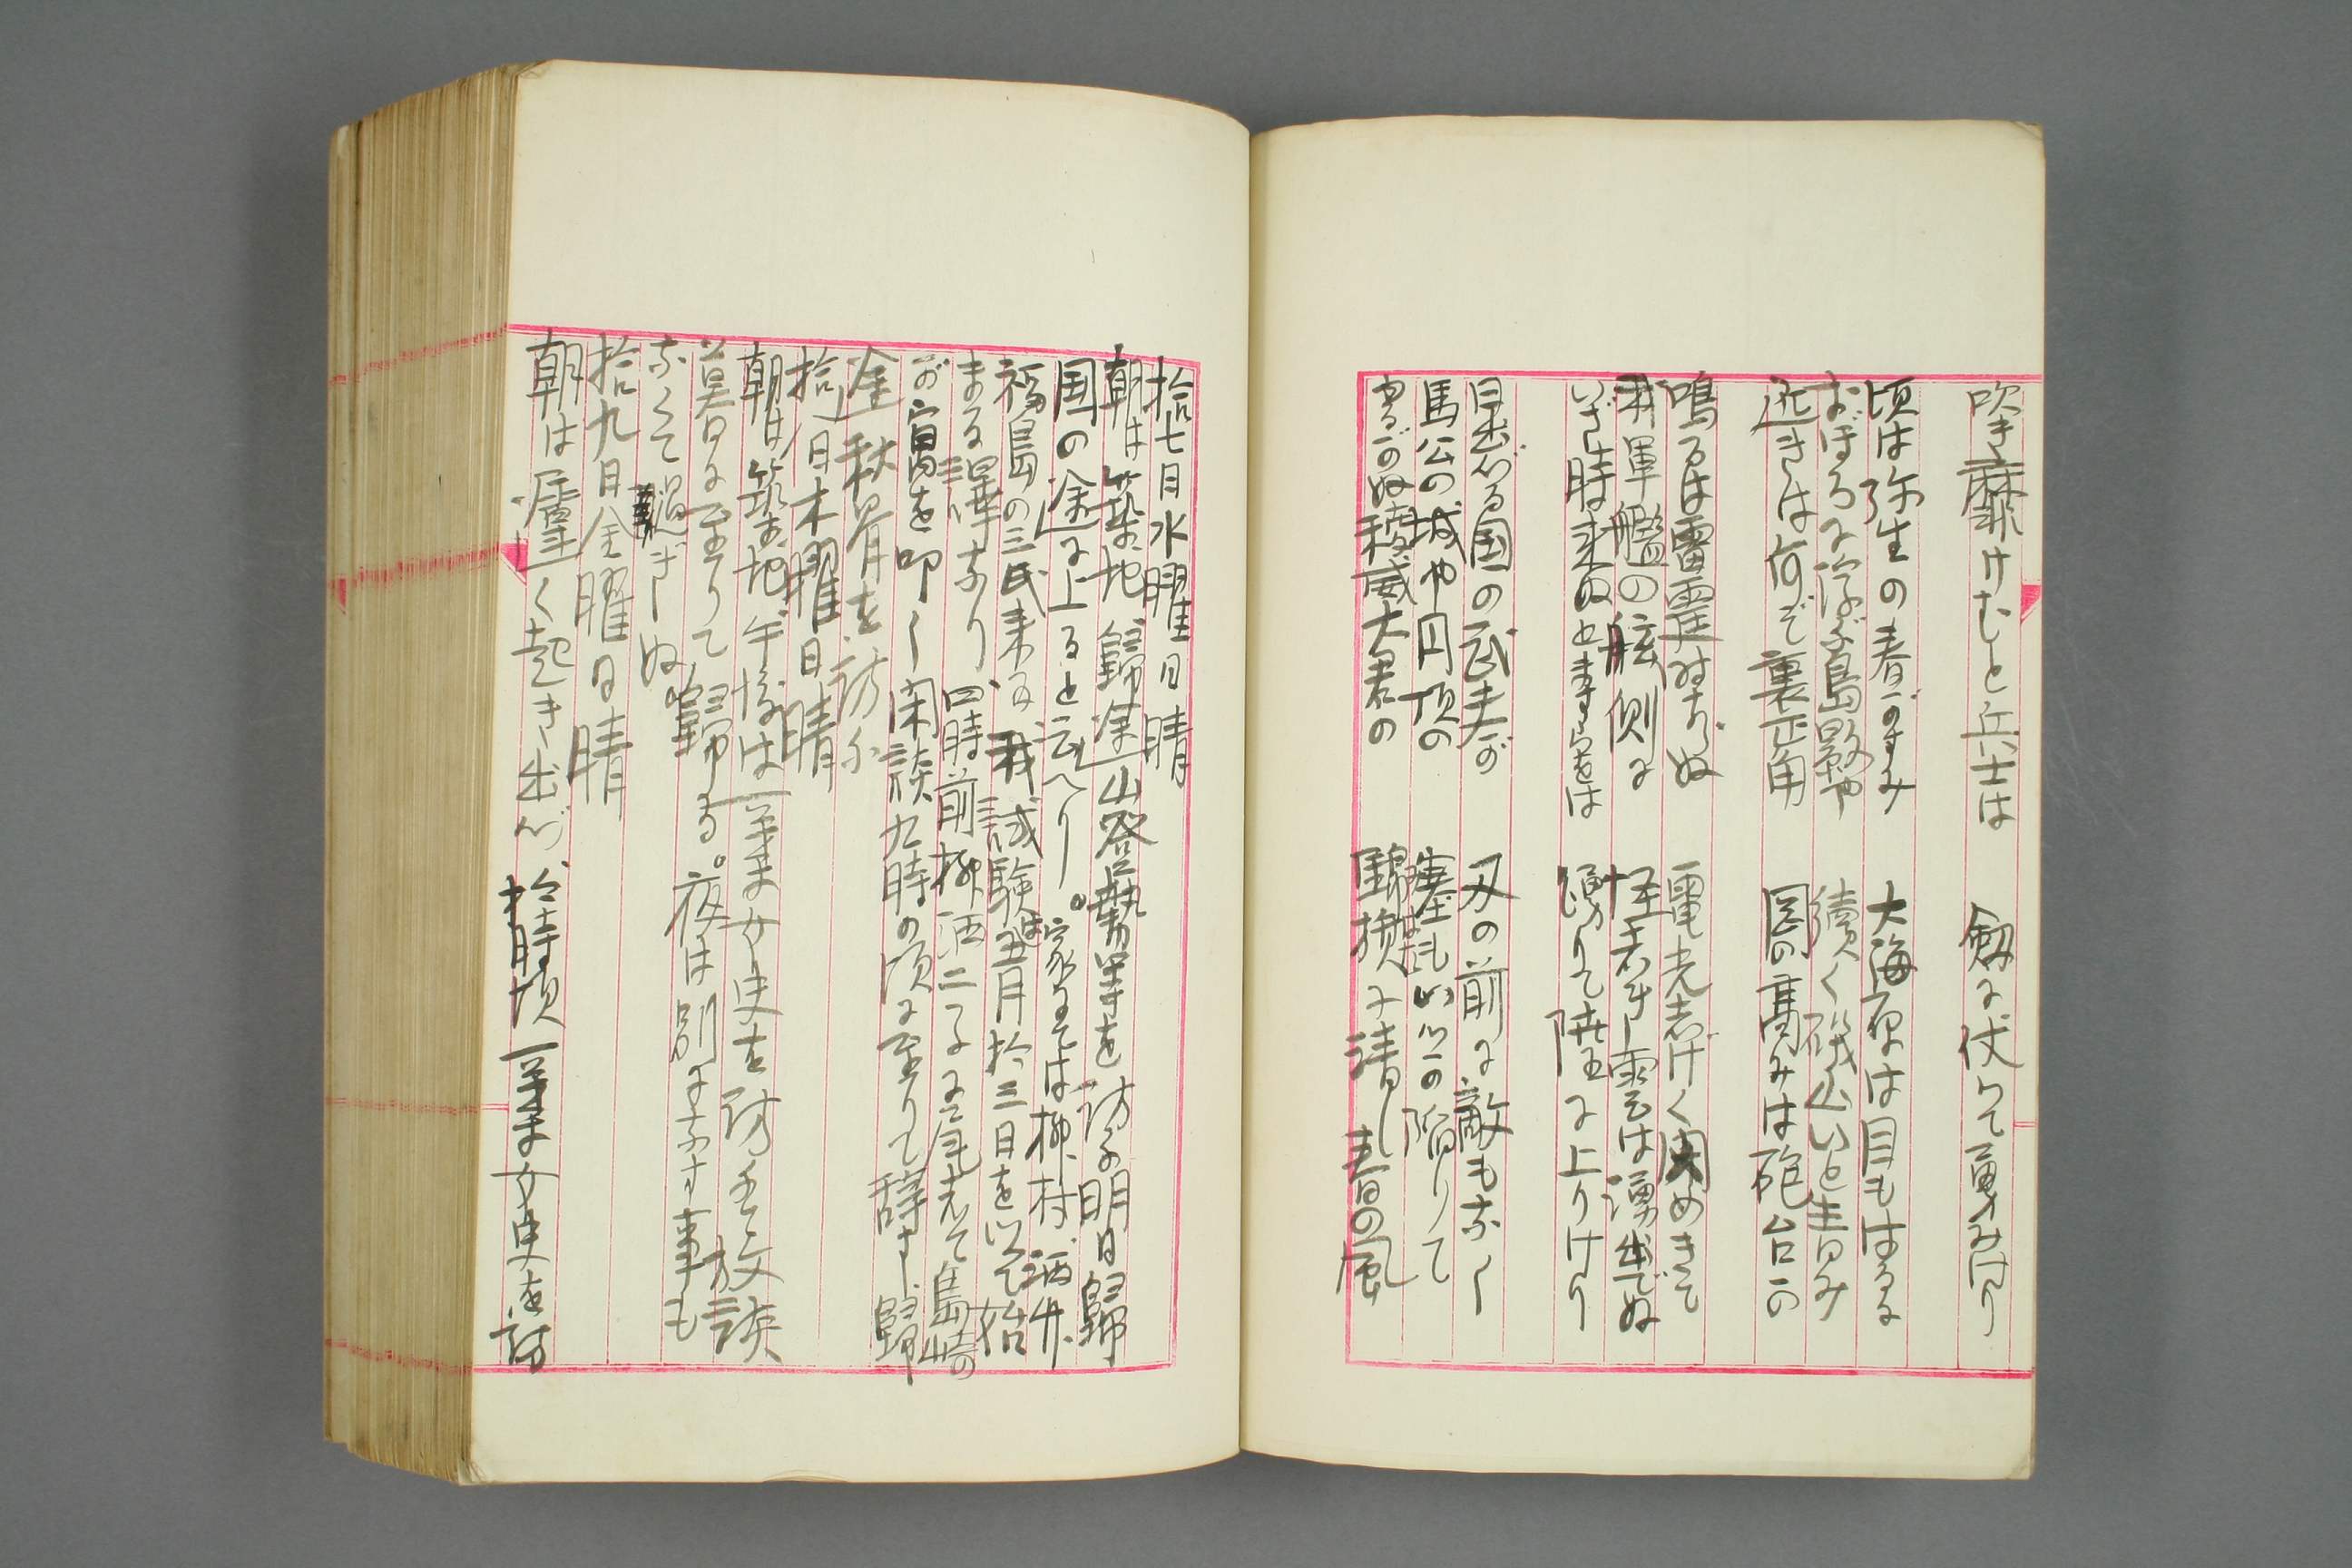 吹き靡けむと兵士は　劔に伏りて勇みけり
頃は弥生の春がすみ　大海原は目もはるに
おぼろに浮ぶ島影や　續く磯山いと青み
近きは有ぞ裏正角　岡の髙みは砲台か
鳴るは雷霆はためきぬ　電光志げく閃めきて
我軍艦の舷側に　怪しき雲は湧出でぬ
いざ時来ぬと　踴りて陸に上りけり
日出づる国の武夫が　刃の前に敵もなし
馬公の城や円頂の　塞塁もいつか陥りて
稜威大君の　錦旗に清し春の風
拾七日水曜日晴
朝は築地、歸途山登勢等を訪ふ明日歸
国の途に上ると云へり。家にては柳村、酒井、
福島の三氏来る、我試験は五月拾三日を以て始
まる筈なり、四時前柳酒二子は辞
が寓を叩く閑談九時の頃に至りて辞す、歸
途秋骨を訪ふ
拾八日木曜日晴
朝は築地、午後は一葉女史を訪ふて放談
暮に至りて歸る。夜は別になす事も
なくて過ぎしぬ
拾九日金曜日晴
朝は遅く起き出づ、拾時頃一葉女史を訪